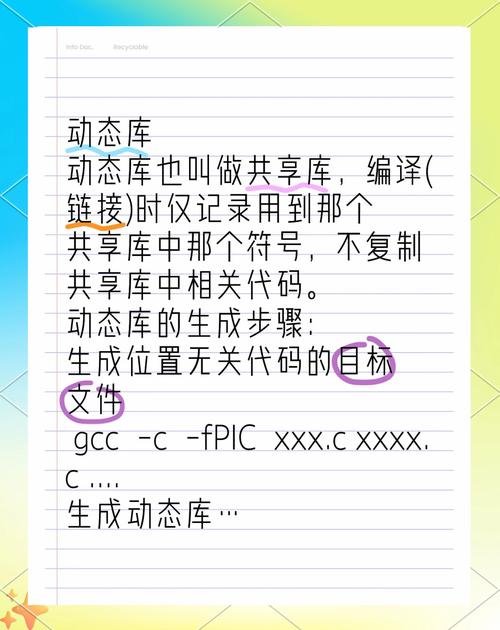 Info Doc. Recyclable
动态库
动态库也叫做共享库，编译(
链接)时仅记录用到那个
共享库中那个符号，不复制
共享库中相关代码。
动态库的生成步骤：
生成位置无关代码的目标
文件
gcc -c -fPIC xxx.c xxxx.
c ....
生成动态库…